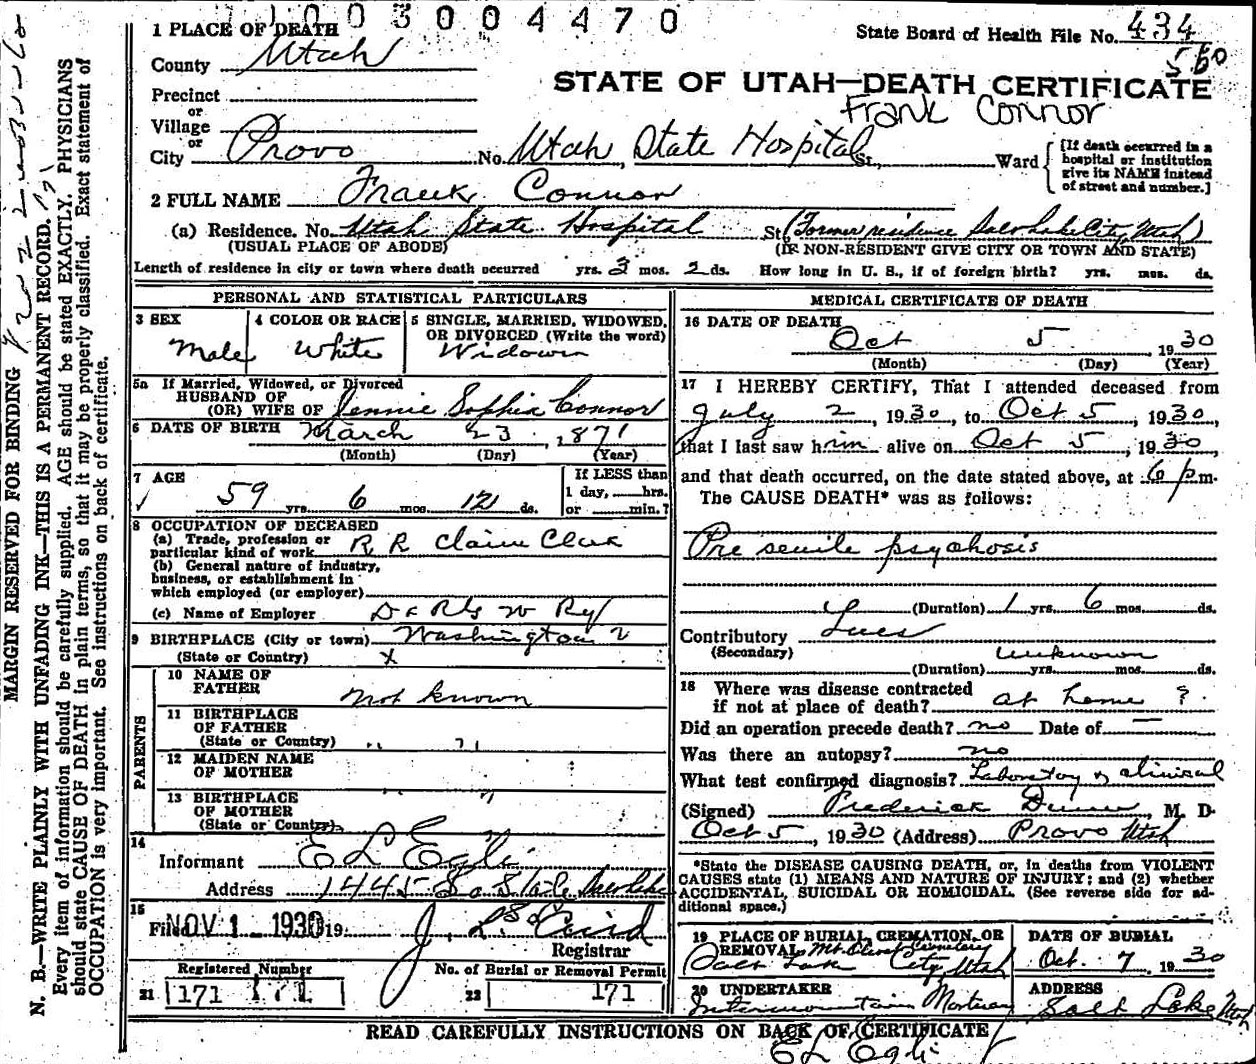 1003004470
1 PLACE OF DEATH
State Board of Health File No. 434
560
County Utah
STATE OF UTAH—DEATH CERTIFICATE
Precinct
Frank Connor
or
Village
or
City Provo No. Utah State Hospital St., Ward
[If death occurred in a
hospital or institution
give its NAME instead
of street and number.]
2 FULL NAME Frank Connor
(a) Residence. No. Utah State Hospital St. (Former residence Salt Lake City, Utah)
(USUAL PLACE OF ABODE) (IF NON-RESIDENT GIVE CITY OR TOWN AND STATE)
Length of residence in city or town where death occurred yrs. 3 mos. 2 ds. How long in U. S., if of foreign birth? yrs. mos. ds.
PERSONAL AND STATISTICAL PARTICULARS
3 SEX 4 COLOR OR RACE 5 SINGLE, MARRIED, WIDOWED,
OR DIVORCED (Write the word)
Male White Widown
5a If Married, Widowed, or Divorced
HUSBAND OF
(OR) WIFE OF Jennie Sophia Connor
6 DATE OF BIRTH March 23, 1871
(Month) (Day) (Year)
7 AGE
If LESS than
1 day, hrs.
or min.?
59 yrs. 6 mos. 12 ds.
8 OCCUPATION OF DECEASED
(a) Trade, profession or
particular kind of work R R Claim Clerk
(b) General nature of industry,
business, or establishment in
which employed (or employer)
(c) Name of Employer D & R G W Ry
9 BIRTHPLACE (City or town) Washington
(State or Country) X
PARENTS
10 NAME OF
FATHER not known
11 BIRTHPLACE
OF FATHER
(State or Country) " "
12 MAIDEN NAME
OF MOTHER
13 BIRTHPLACE
OF MOTHER
(State or Country)
14
Informant E L Egli
Address 1445 So State Salt Lake
15
Filed NOV 1 1930 19
Registrar
Registered Number No. of Burial or Removal Permit
21 171 171 22 171
MEDICAL CERTIFICATE OF DEATH
16 DATE OF DEATH
Oct 5 1930
(Month) (Day) (Year)
17 I HEREBY CERTIFY, That I attended deceased from
July 2, 1930, to Oct 5, 1930
that I last saw him alive on Oct 5, 1930
and that death occurred, on the date stated above, at 6 p m.
The CAUSE DEATH* was as follows:
Pre senile psychosis
(Duration) 1 yrs. 6 mos. ds.
Contributory Lues
(Secondary) unknown
(Duration) yrs. mos. ds.
18 Where was disease contracted
if not at place of death? at home ?
Did an operation precede death? no Date of —
Was there an autopsy? no
What test confirmed diagnosis? Laboratory & clinical
(Signed) Frederick Dunn, M. D.
Oct 5, 1930 (Address) Provo Utah
*State the DISEASE CAUSING DEATH, or, in deaths from VIOLENT
CAUSES state (1) MEANS AND NATURE OF INJURY; and (2) whether
ACCIDENTAL, SUICIDAL OR HOMICIDAL. (See reverse side for ad-
ditional space.)
19 PLACE OF BURIAL, CREMATION, OR
REMOVAL Mt. Olivet Cemetery
Salt Lake City, Utah
DATE OF BURIAL
Oct. 7 1930
20 UNDERTAKER
Intermountain Mortuary
ADDRESS
Salt Lake Utah
READ CAREFULLY INSTRUCTIONS ON BACK OF CERTIFICATE
E L Egli
MARGIN RESERVED FOR BINDING
N. B.—WRITE PLAINLY WITH UNFADING INK—THIS IS A PERMANENT RECORD.
Every item of information should be carefully supplied. AGE should be stated EXACTLY. PHYSICIANS
should state CAUSE OF DEATH in plain terms, so that it may be properly classified. Exact statement of
OCCUPATION is very important. See instructions on back of certificate.